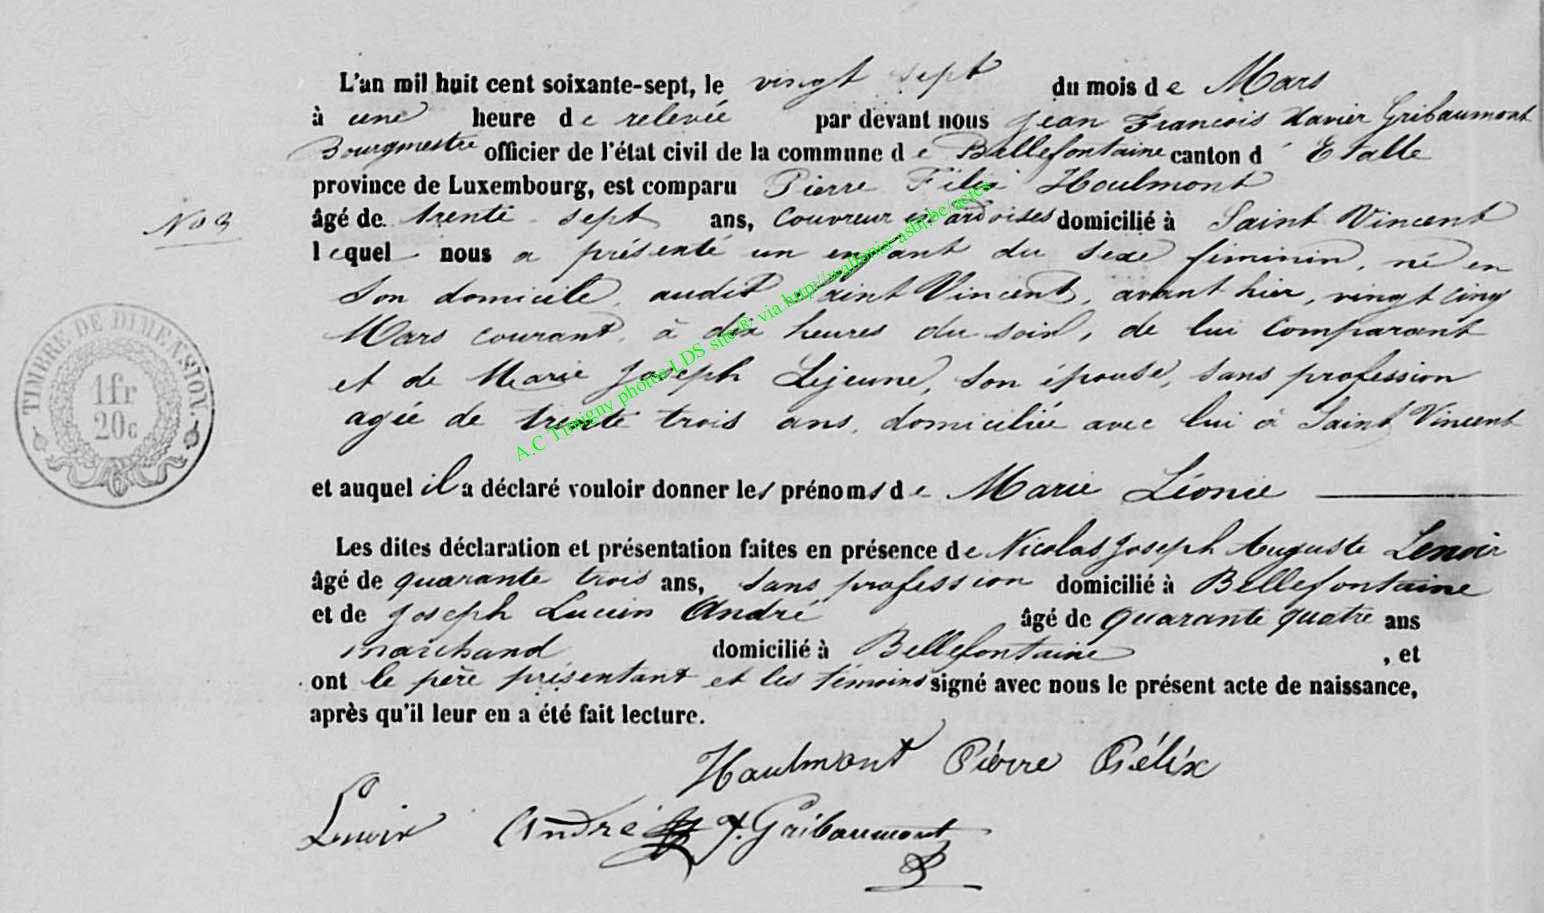 L'an mil huit cent soixante-sept, le vingt sept du mois de Mars
à une heure de relevée par devant nous Jean François Xavier Gribaumont
Bourgmestre officier de l'état civil de la commune de Bellefontaine canton d' Etalle
province de Luxembourg, est comparu Pierre Félix Houlmont
No 3
âgé de trente sept ans, couvreur en ardoises domicilié à Saint Vincent
lequel nous a présenté un enfant du sexe féminin, né en
son domicile, audit Saint Vincent, avant hier, vingt cinq
Mars courant, à dix heures du soir, de lui comparant
et de Marie Joseph Lejeune, son épouse, sans profession
agée de trente trois ans, domiciliée avec lui à Saint Vincent
et auquel il a déclaré vouloir donner les prénoms de Marie Léonie
Les dites déclaration et présentation faites en présence de Nicolas Joseph Auguste Lenoir
âgé de quarante trois ans, sans profession domicilié à Bellefontaine
et de Joseph Lucien André âgé de quarante quatre ans
marchand domicilié à Bellefontaine, et
ont le père présentant et les témoins signé avec nous le présent acte de naissance,
après qu'il leur en a été fait lecture.
Haulmont Pierre Félix
Lenoir André J. Gribaumont
TIMBRE DE DIMENSION.
1fr
20c
A.C Tintigny photos LDS site ® via http://wallonia-asbl.be/actes